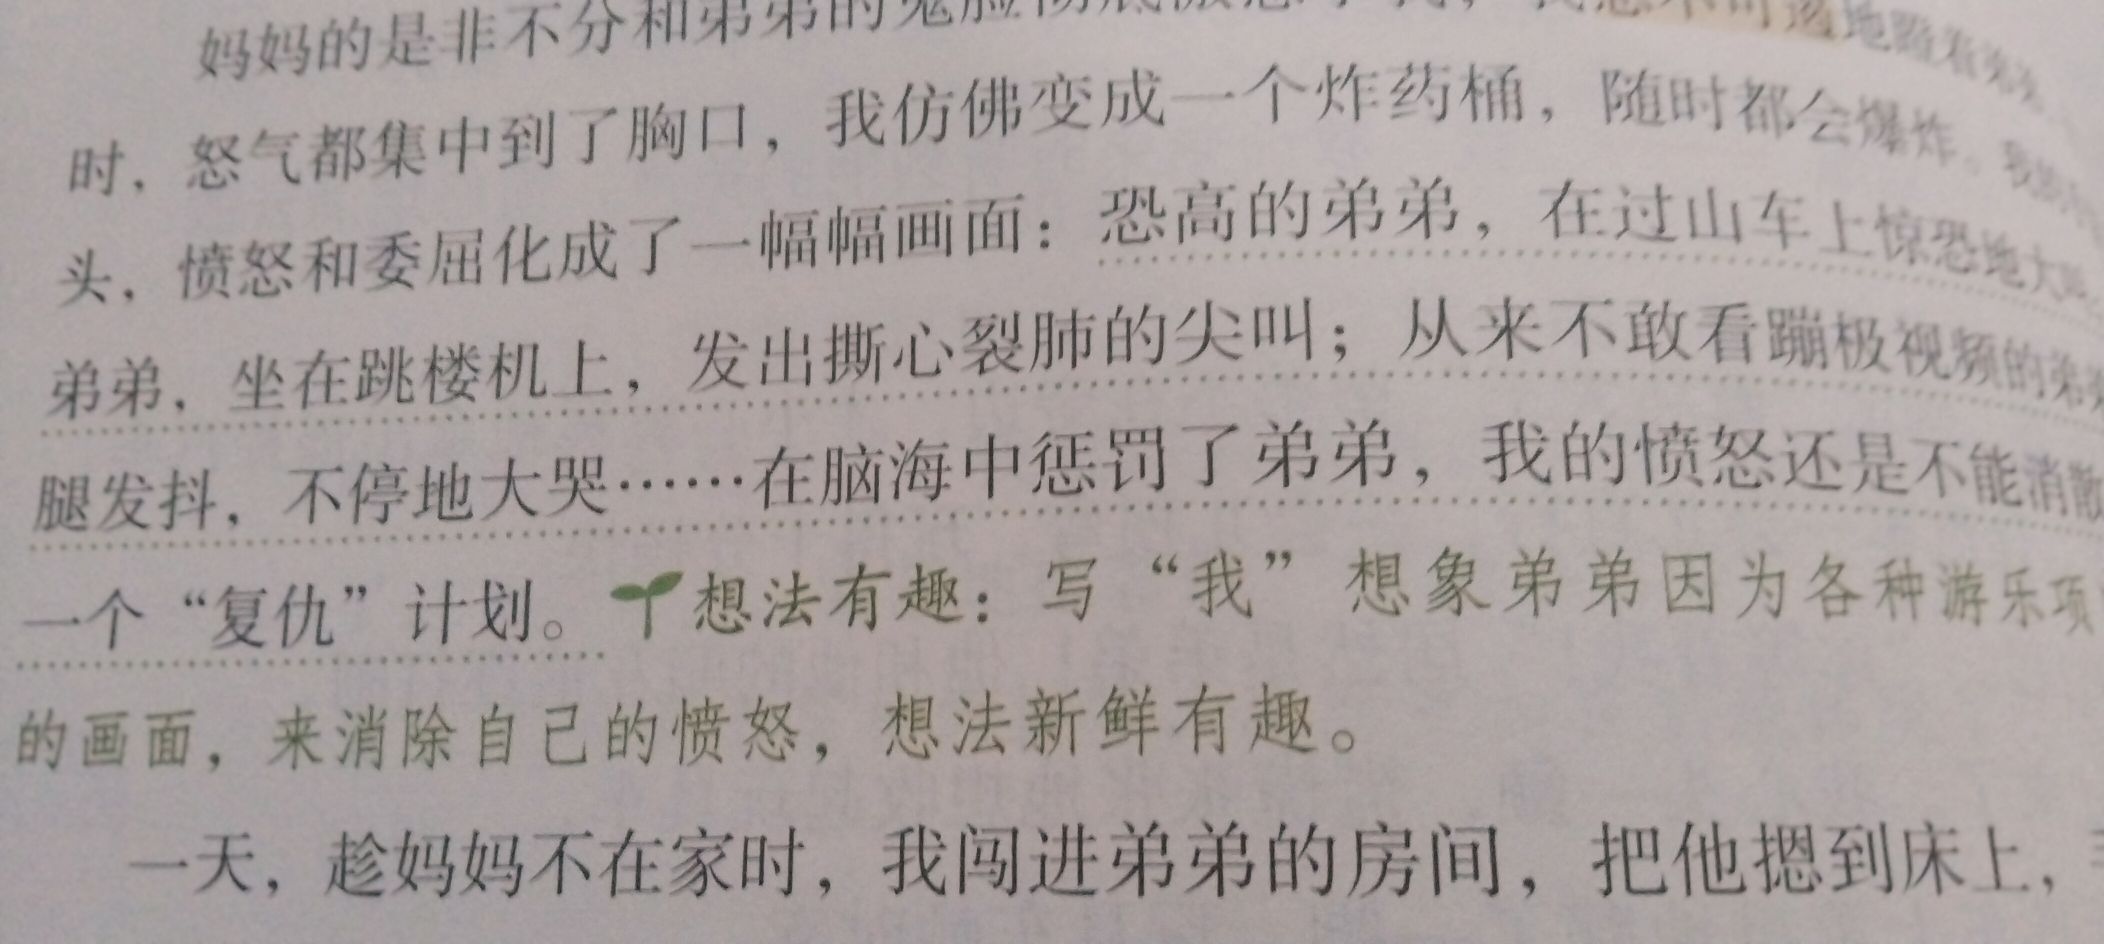 妈妈的是非不分和弟弟的鬼脸彻底激怒了我，我怒不可遏地瞪着弟弟
时，怒气都集中到了胸口，我仿佛变成一个炸药桶，随时都会爆炸。我
头，愤怒和委屈化成了一幅幅画面：恐高的弟弟，在过山车上惊恐地大叫
弟弟，坐在跳楼机上，发出撕心裂肺的尖叫；从来不敢看蹦极视频的弟弟
腿发抖，不停地大哭……在脑海中惩罚了弟弟，我的愤怒还是不能消散
一个“复仇”计划。想法有趣：写“我”想象弟弟因为各种游乐项
的画面，来消除自己的愤怒，想法新鲜有趣。
一天，趁妈妈不在家时，我闯进弟弟的房间，把他摁到床上，